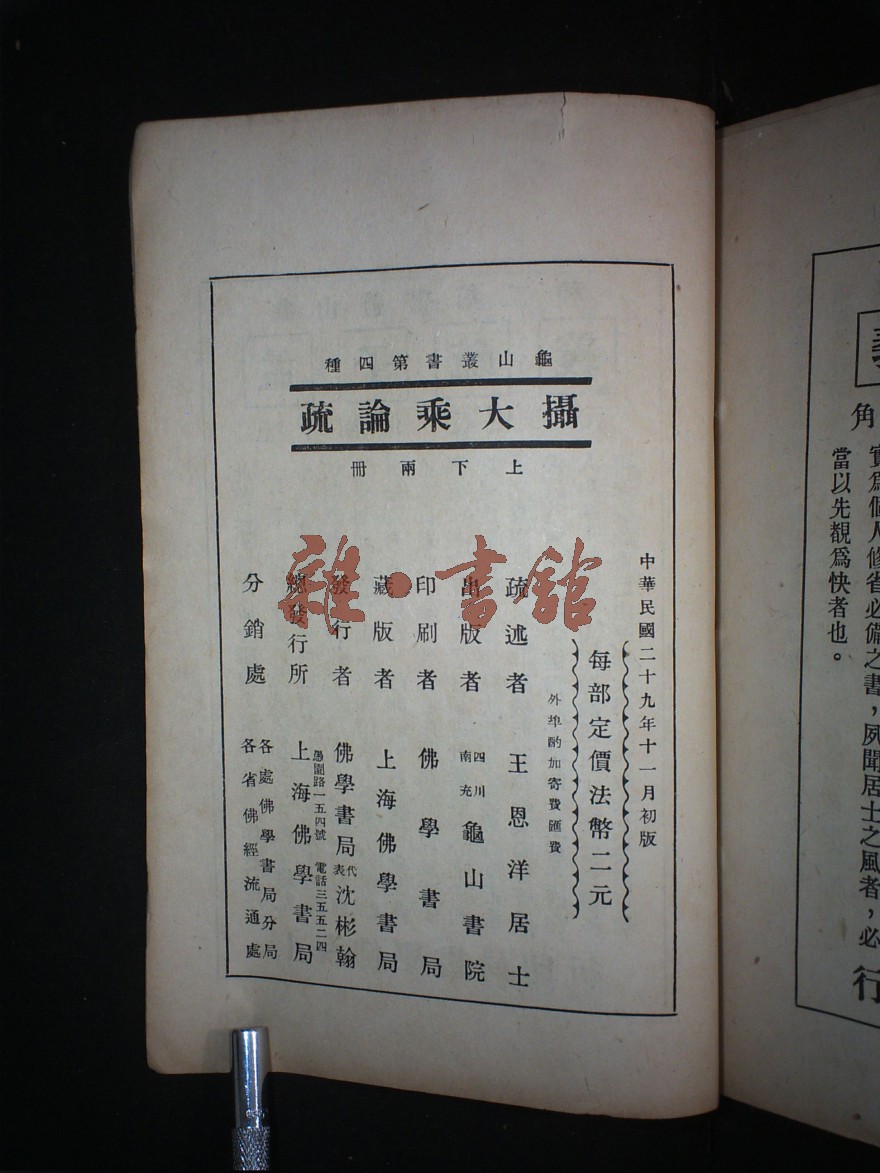 龜山叢書第四種
攝大乘論疏
上下兩冊
中華民國二十九年十一月初版
每部定價法幣二元
外埠酌加寄費匯費
疏述者 王恩洋居士
出版者 四川南充 龜山書院
印刷者 佛學書局
藏版者 上海佛學書局
發行者 佛學書局 代表 沈彬翰
總發行所 上海佛學書局
愚園路一五四號 電話三五五二四
分銷處 各處佛學書局分局
各省佛經流通處
雜·書館
角
實爲個人修省必備之書，夙聞居士之風者，必
當以先覩爲快者也。
行